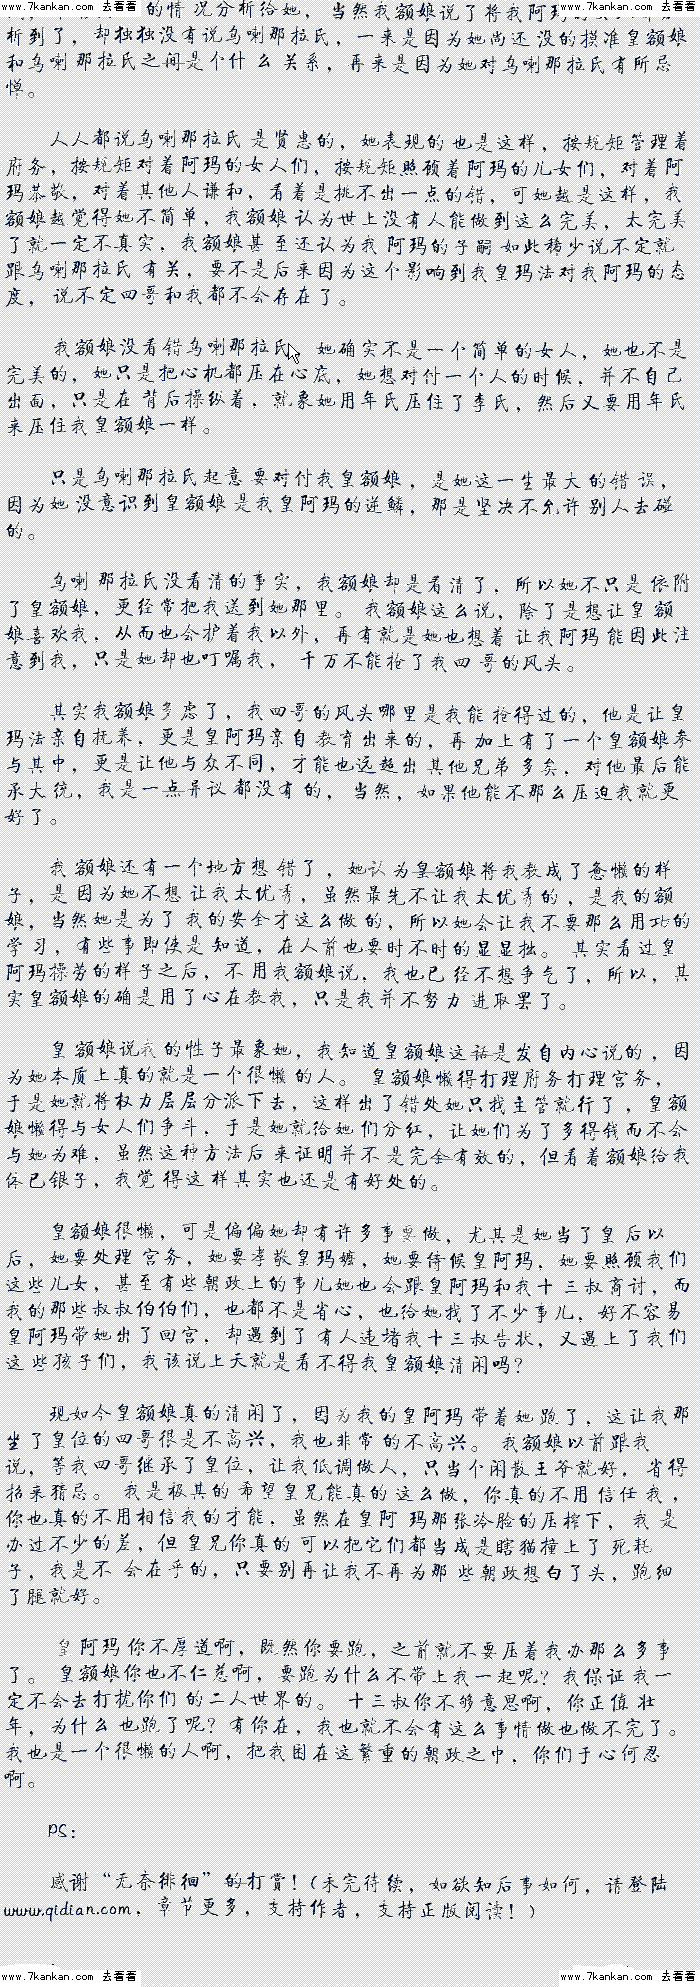 www.7kankan.com 去看看 www.7kankan.com 去看看
的情况分析给她，当然我额娘说了将我阿玛的
析到了，却独独没有说乌喇那拉氏，一来是因为她尚还没的摸准皇额娘
和乌喇那拉氏之间是个什么关系，再来是因为她对乌喇那拉氏有所忌
惮。
人人都说乌喇那拉氏是贤惠的，她表现的也是这样，按规矩管理着
府务，按规矩对着阿玛的女人们，按规矩照顾着阿玛的儿女们，对着阿
玛恭敬，对着其他人谦和，看着是挑不出一点的错，可她越是这样，我
额娘越觉得她不简单，我额娘认为世上没有人能做到这么完美，太完美
了就一定不真实，我额娘甚至还认为我阿玛的子嗣如此稀少说不定就
跟乌喇那拉氏有关，要不是后来因为这个影响到我皇玛法对我阿玛的态
度，说不定四哥和我都不会存在了。
我额娘没看错乌喇那拉氏，她确实不是一个简单的女人，她也不是
完美的，她只是把心机都压在心底，她想对付一个人的时候，并不自己
出面，只是在背后操纵着，就象她用年氏压住了李氏，然后又要用年氏
来压住我皇额娘一样。
只是乌喇那拉氏起意要对付我皇额娘，是她这一生最大的错误，
因为她没意识到皇额娘是我皇阿玛的逆鳞，那是坚决不允许别人去碰
的。
乌喇那拉氏没看清的事实，我额娘却是看清了，所以她不只是依附
了皇额娘，更经常把我送到她那里。我额娘这么说，除了是想让皇额
娘喜欢我，从而也会护着我以外，再有就是她也想着让我阿玛能因此注
意到我，只是她却也叮嘱我，千万不能抢了我四哥的风头。
其实我额娘多虑了，我四哥的风头哪里是我能抢得过的，他是让皇
玛法亲自抚养，更是皇阿玛亲自教育出来的，再加上有了一个皇额娘参
与其中，更是让他与众不同，才能也远超出其他兄弟多矣，对他最后能
承大统，我是一点异议都没有的，当然，如果他能不那么压迫我就更
好了。
我额娘还有一个地方想错了，她认为皇额娘将我教成了惫懒的样
子，是因为她不想让我太优秀，虽然最先不让我太优秀的，是我的额
娘，当然她是为了我的安全才这么做的，所以她会让我不要那么用功的
学习，有些事即使是知道，在人前也要时不时的显显拙。其实看过皇
阿玛操劳的样子之后，不用我额娘说，我也已经不想争气了，所以，其
实皇额娘的确是用了心在教我，只是我并不努力进取罢了。
皇额娘说我的性子最象她，我知道皇额娘这话是发自内心说的，因
为她本质上真的就是一个很懒的人。皇额娘懒得打理府务打理宫务，
于是她就将权力层层分派下去，这样出了错处她只找主管就行了，皇额
娘懒得与女人们争斗，于是她就给她们分红，让她们为了多得钱而不会
与她为难，虽然这种方法后来证明并不是完全有效的，但看着额娘给我
体已银子，我觉得这样其实也还是有好处的。
皇额娘很懒，可是偏偏她却有许多事要做，尤其是她当了皇后以
后，她要处理宫务，她要孝敬皇玛嬷，她要侍候皇阿玛，她要照顾我们
这些儿女，甚至有些朝政上的事儿她也会跟皇阿玛和我十三叔商讨，而
我的那些叔叔伯伯们，也都不是省心，也给她找了不少事儿，好不容易
皇阿玛带她出了回宫，却遇到了有人违堵我十三叔告状，又遇上了我们
这些孩子们，我该说上天就是看不得我皇额娘清闲吗？
现如今皇额娘真的清闲了，因为我的皇阿玛带着她跑了，这让我那
坐了皇位的四哥很是不高兴，我也非常的不高兴。我额娘以前跟我
说，等我四哥继承了皇位，让我低调做人，只当个闲散王爷就好，省得
招来猜忌。我是极其的希望皇兄能真的这么做，你真的不用信任我，
你也真的不用相信我的才能，虽然在皇阿玛那张冷脸的压榨下，我是
办过不少的差，但皇兄你真的可以把它们都当成是瞎猫撞上了死耗
子，我是不会在乎的，只要别再让我不再为那些朝政想白了头，跑细
了腿就好。
皇阿玛你不厚道啊，既然你要跑，之前就不要压着我办那么多事
了。皇额娘你也不仁慈啊，要跑为什么不带上我一起呢？我保证我一
定不会去打扰你们的二人世界的。十三叔你不够意思啊，你正值壮
年，为什么也跑了呢？有你在，我也就不会有这么事情做也做不完了。
我也是一个很懒的人啊，把我困在这繁重的朝政之中，你们于心何忍
啊。
PS：
感谢“无奈徘徊”的打赏！(未完待续，如欲知后事如何，请登陆
www.qidian.com，章节更多，支持作者，支持正版阅读！)
www.7kankan.com 去看看 www.7kankan.com 去看看